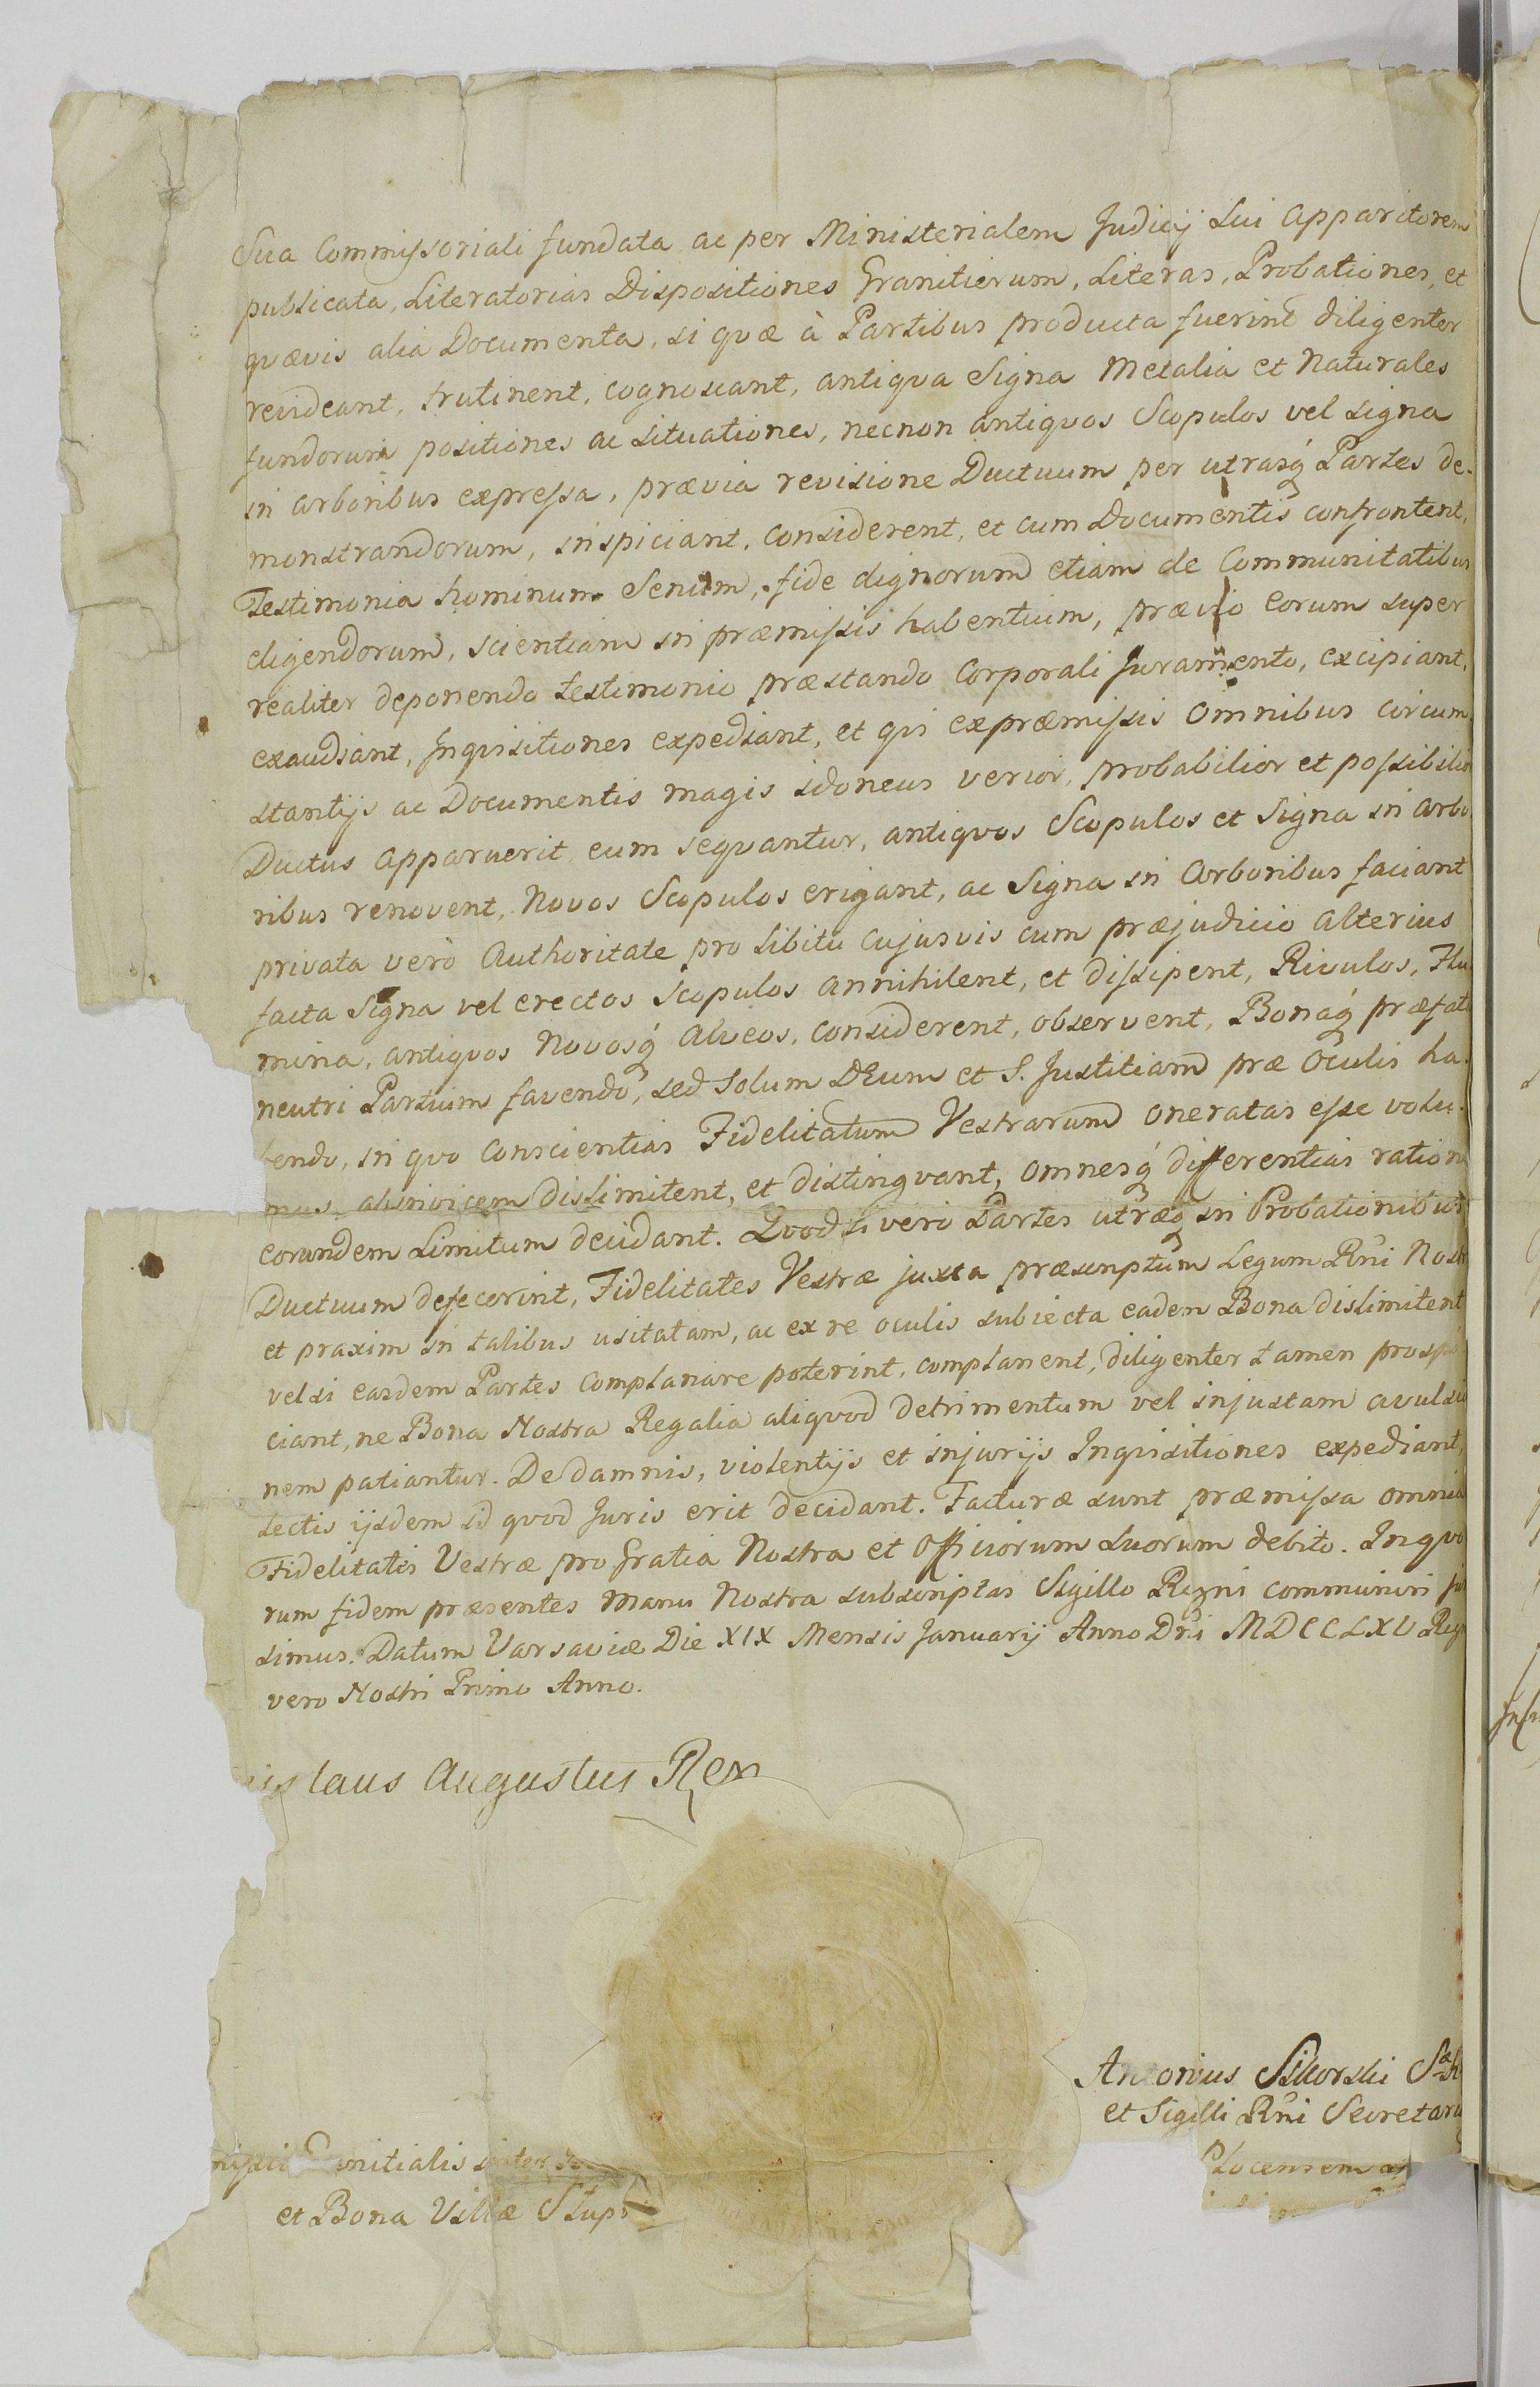 Sua Commissoriali fundata ac per Ministerialem Judicij sui Apparitorem
publicata, Literatorias Dispositiones Granitierum, Literas, Probationes, et
quævis alia Documenta, si quæ à Partibus producta fuerint diligenter
revideant, trutinent, cognoscant, antiqua Signa Metalia et Naturales
fundorum positiones ac situationes, necnon antiquos Scopulos vel signa
in arboribus expressa, prævia revisione Ductuum per utrasq́ Partes de-
monstrandorum, inspiciant, considerent, et cum Documentis confrontent,
Testimonia hominum Senum, fide dignorum etiam de Communitatibus
eligendorum, scientiam in præmissis habentium, prævio eorum super
realiter deponendo testimonio præstando Corporali Juramento, excipiant,
exaudiant, Inquisitiones expediant, et qui ex præmissis omnibus circum
stantijs ac Documentis magis idoneus verior, probabilior et possibilior
Ductus apparuerit eum sequantur, antiquos Scopulos et Signa in arbo
ribus renovent, Novos Scopulos erigant, ac Signa in Arboribus faciant
privata verò Authoritate pro libitu cujusvis cum præjudicio alterius
facta Signa vel erectos Scopulos annihilent, et dissipent, Rivulos, Flu
mina, antiquos Novosq́ Alveos, considerent, observent, Bonaq́ præfata
neutri Partium favendo, sed solum DEum et S. Justitiam præ Oculis ha-
bendo, in quo Conscientias Fidelitatum Vestrarum oneratas esse volu-
mus, abinvicem dislimitent, et distingvant, omnesq́ differentias ratione
eorundem Limitum decidant. Quod si vero Partes utræq́ in Probationibus
Ductuum defecerint, Fidelitates Vestræ juxta præscriptum Legum Rñi Nostri
et praxim in talibus usitatam, ac ex re oculis subiecta eadem Bona dislimitent
vel si eædem Partes complanare poterint, complanent, diligenter tamen prospi
ciant, ne Bona Nostra Regalia aliquod detrimentum vel injustam avulsio
nem patiantur. De damnis, violentijs et injurijs Inquisitiones expediant,
lectis ijsdem id quod Juris erit decidant. Facturæ sunt præmissa omnia
Fidelitatis Vestræ pro Gratia Nostra et Officiorum suorum debito. In quo
rum fidem præsentes Manu Nostra subscriptas Sigillo Regni communiri jus
simus. Datum Varsaviæ Die XIX Mensis Januarij Anno Dñi MDCCLXV Regn
vero Nostri Primo Anno.
islaus Augustus Rex
Antonius Sikorski
et Sigilli Rñi Secretariu
Plocensem
nitialis
et Bona Villæ Stup